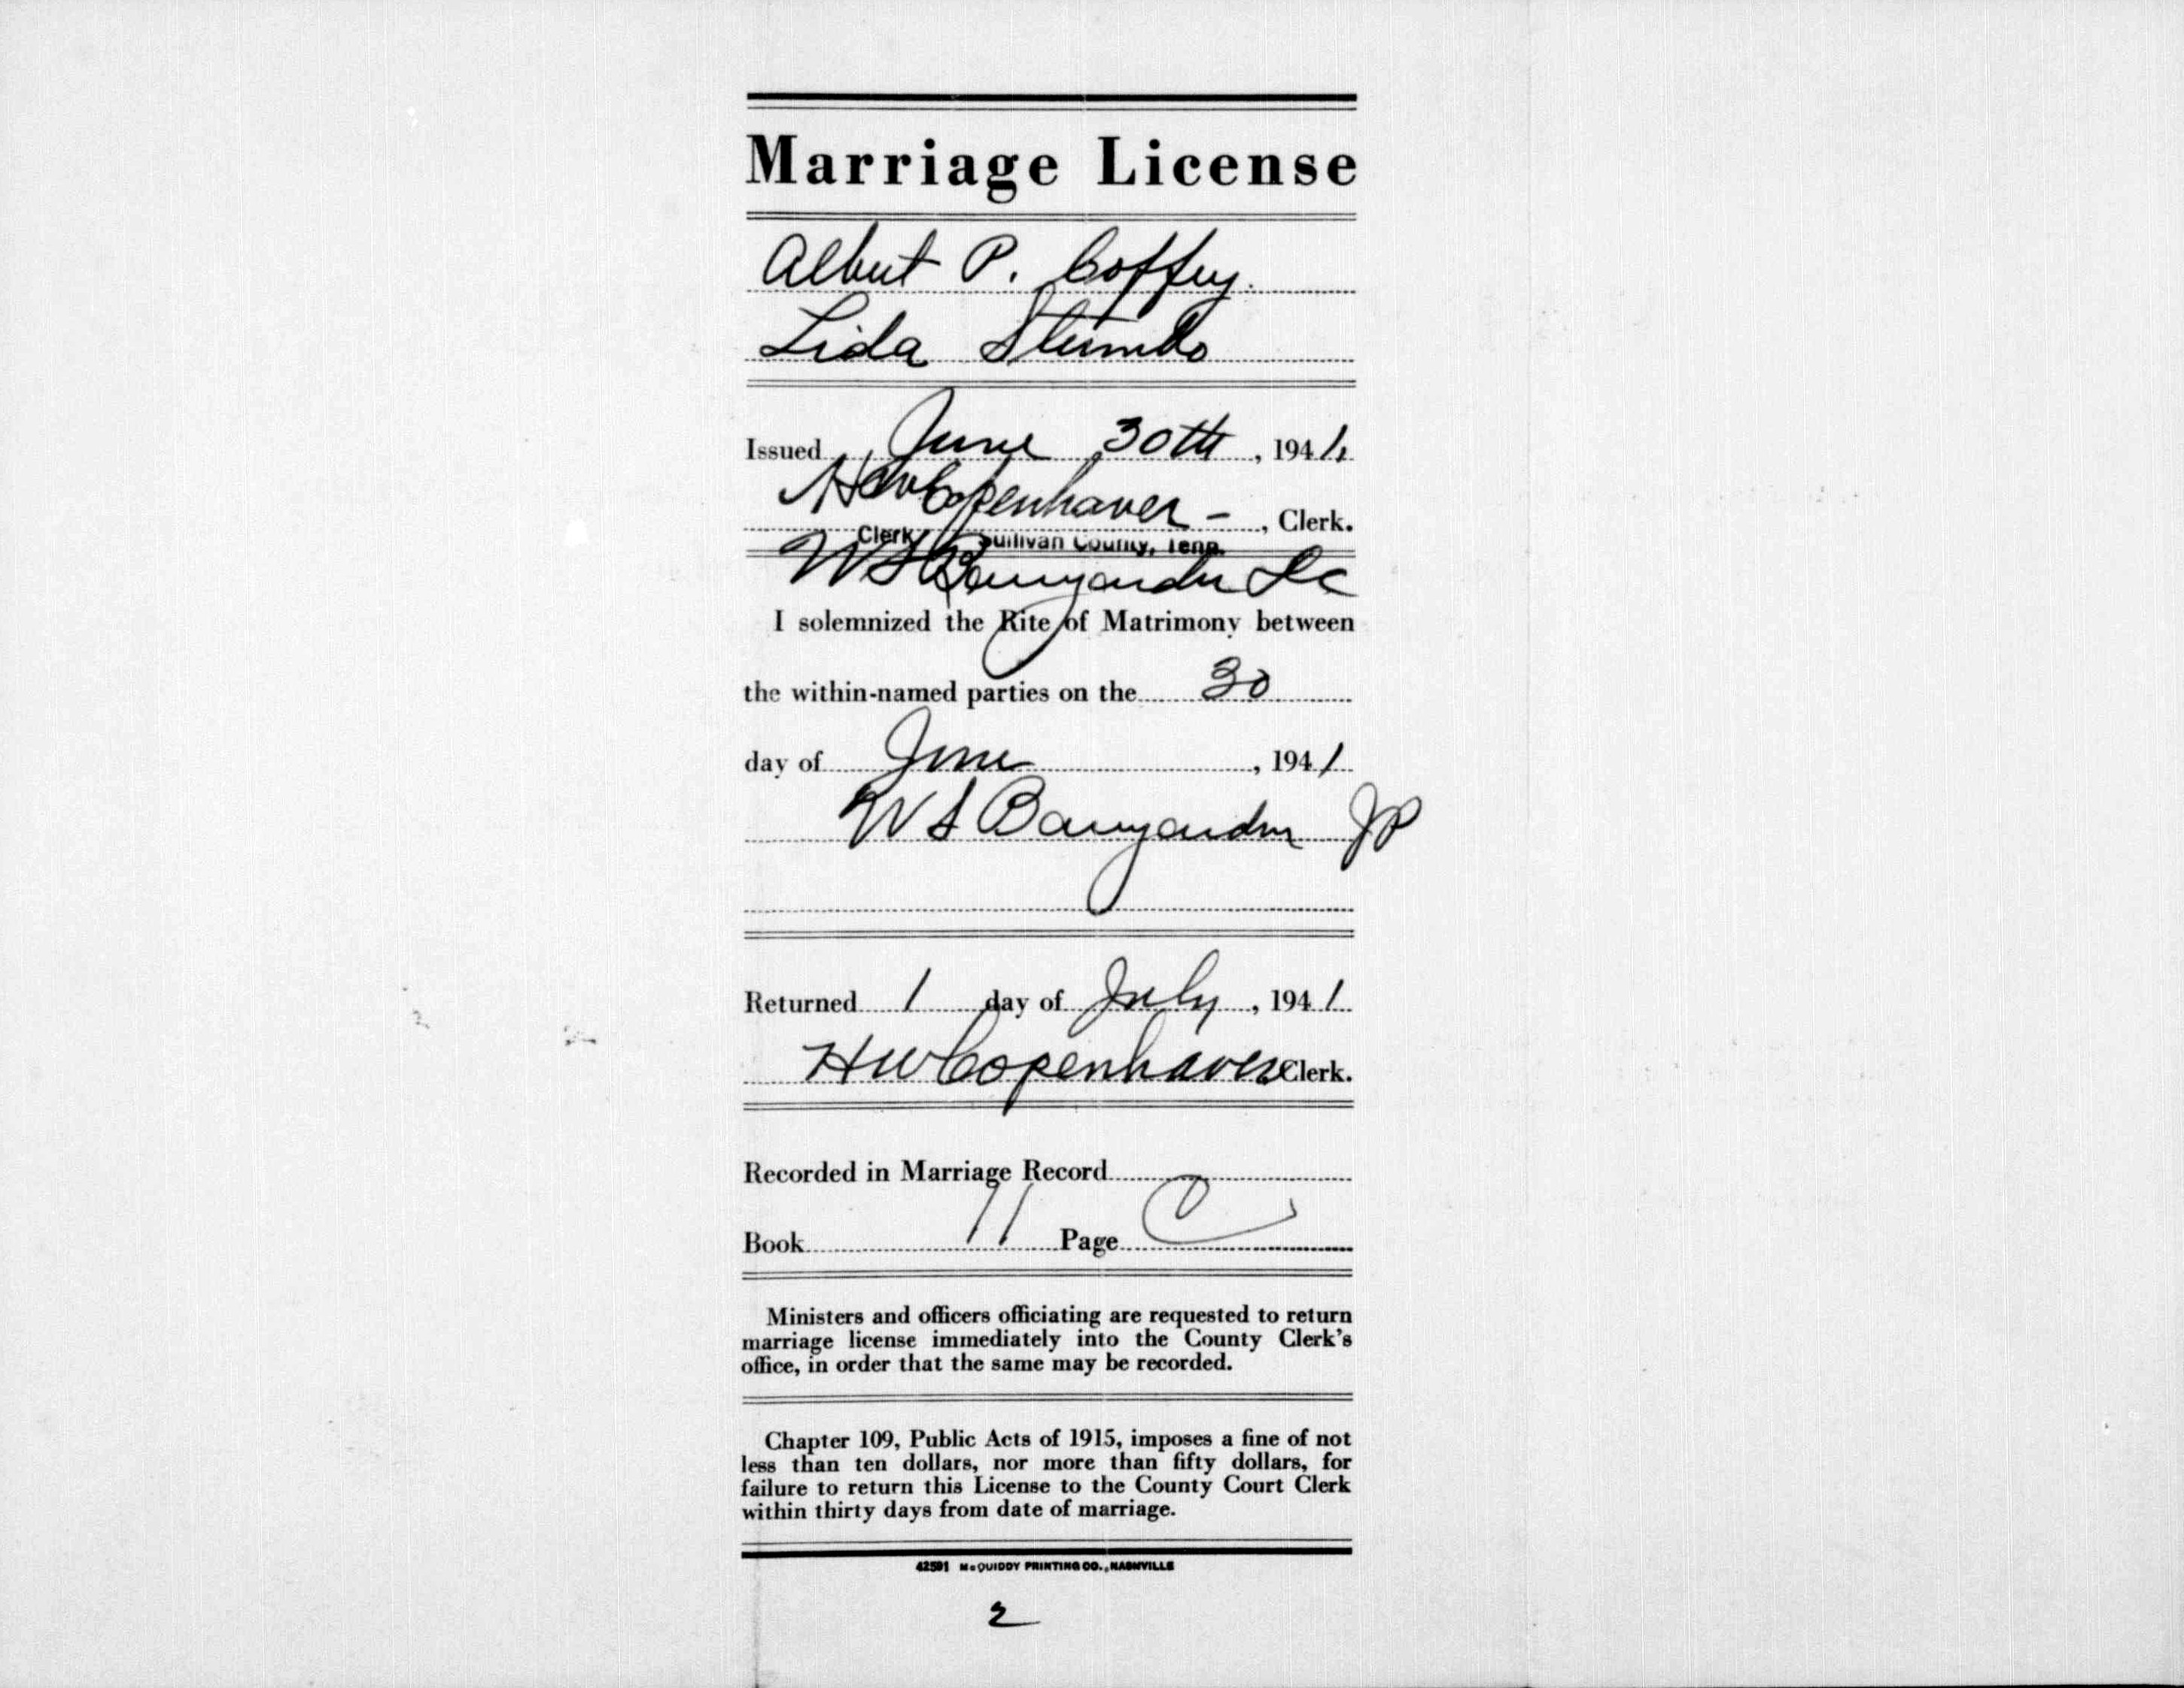 Marriage License
Albert P. Coffey
Lida Stumbo
Issued June 30th, 1941
H W Copenhaver -, Clerk.
Clerk Sullivan County, Tenn.
W S Bumgardner DC
I solemnized the Rite of Matrimony between
the within-named parties on the 30
day of June, 1941
W S Bumgardner JP
Returned 1 day of July, 1941
H W Copenhaver Clerk.
Recorded in Marriage Record
Book 11 Page
Ministers and officers officiating are requested to return
marriage license immediately into the County Clerk's
office, in order that the same may be recorded.
Chapter 109, Public Acts of 1915, imposes a fine of not
less than ten dollars, nor more than fifty dollars, for
failure to return this License to the County Court Clerk
within thirty days from date of marriage.
42591 McQUIDDY PRINTING CO., NASHVILLE
2